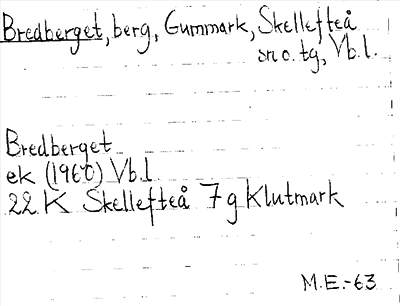 Bredberget, berg, Gummark, Skellefteå
sn o. tg, Vb. l.
Bredberget
ek (1960) Vb.l
22 K Skellefteå 7 g Klutmark
M.E.-63